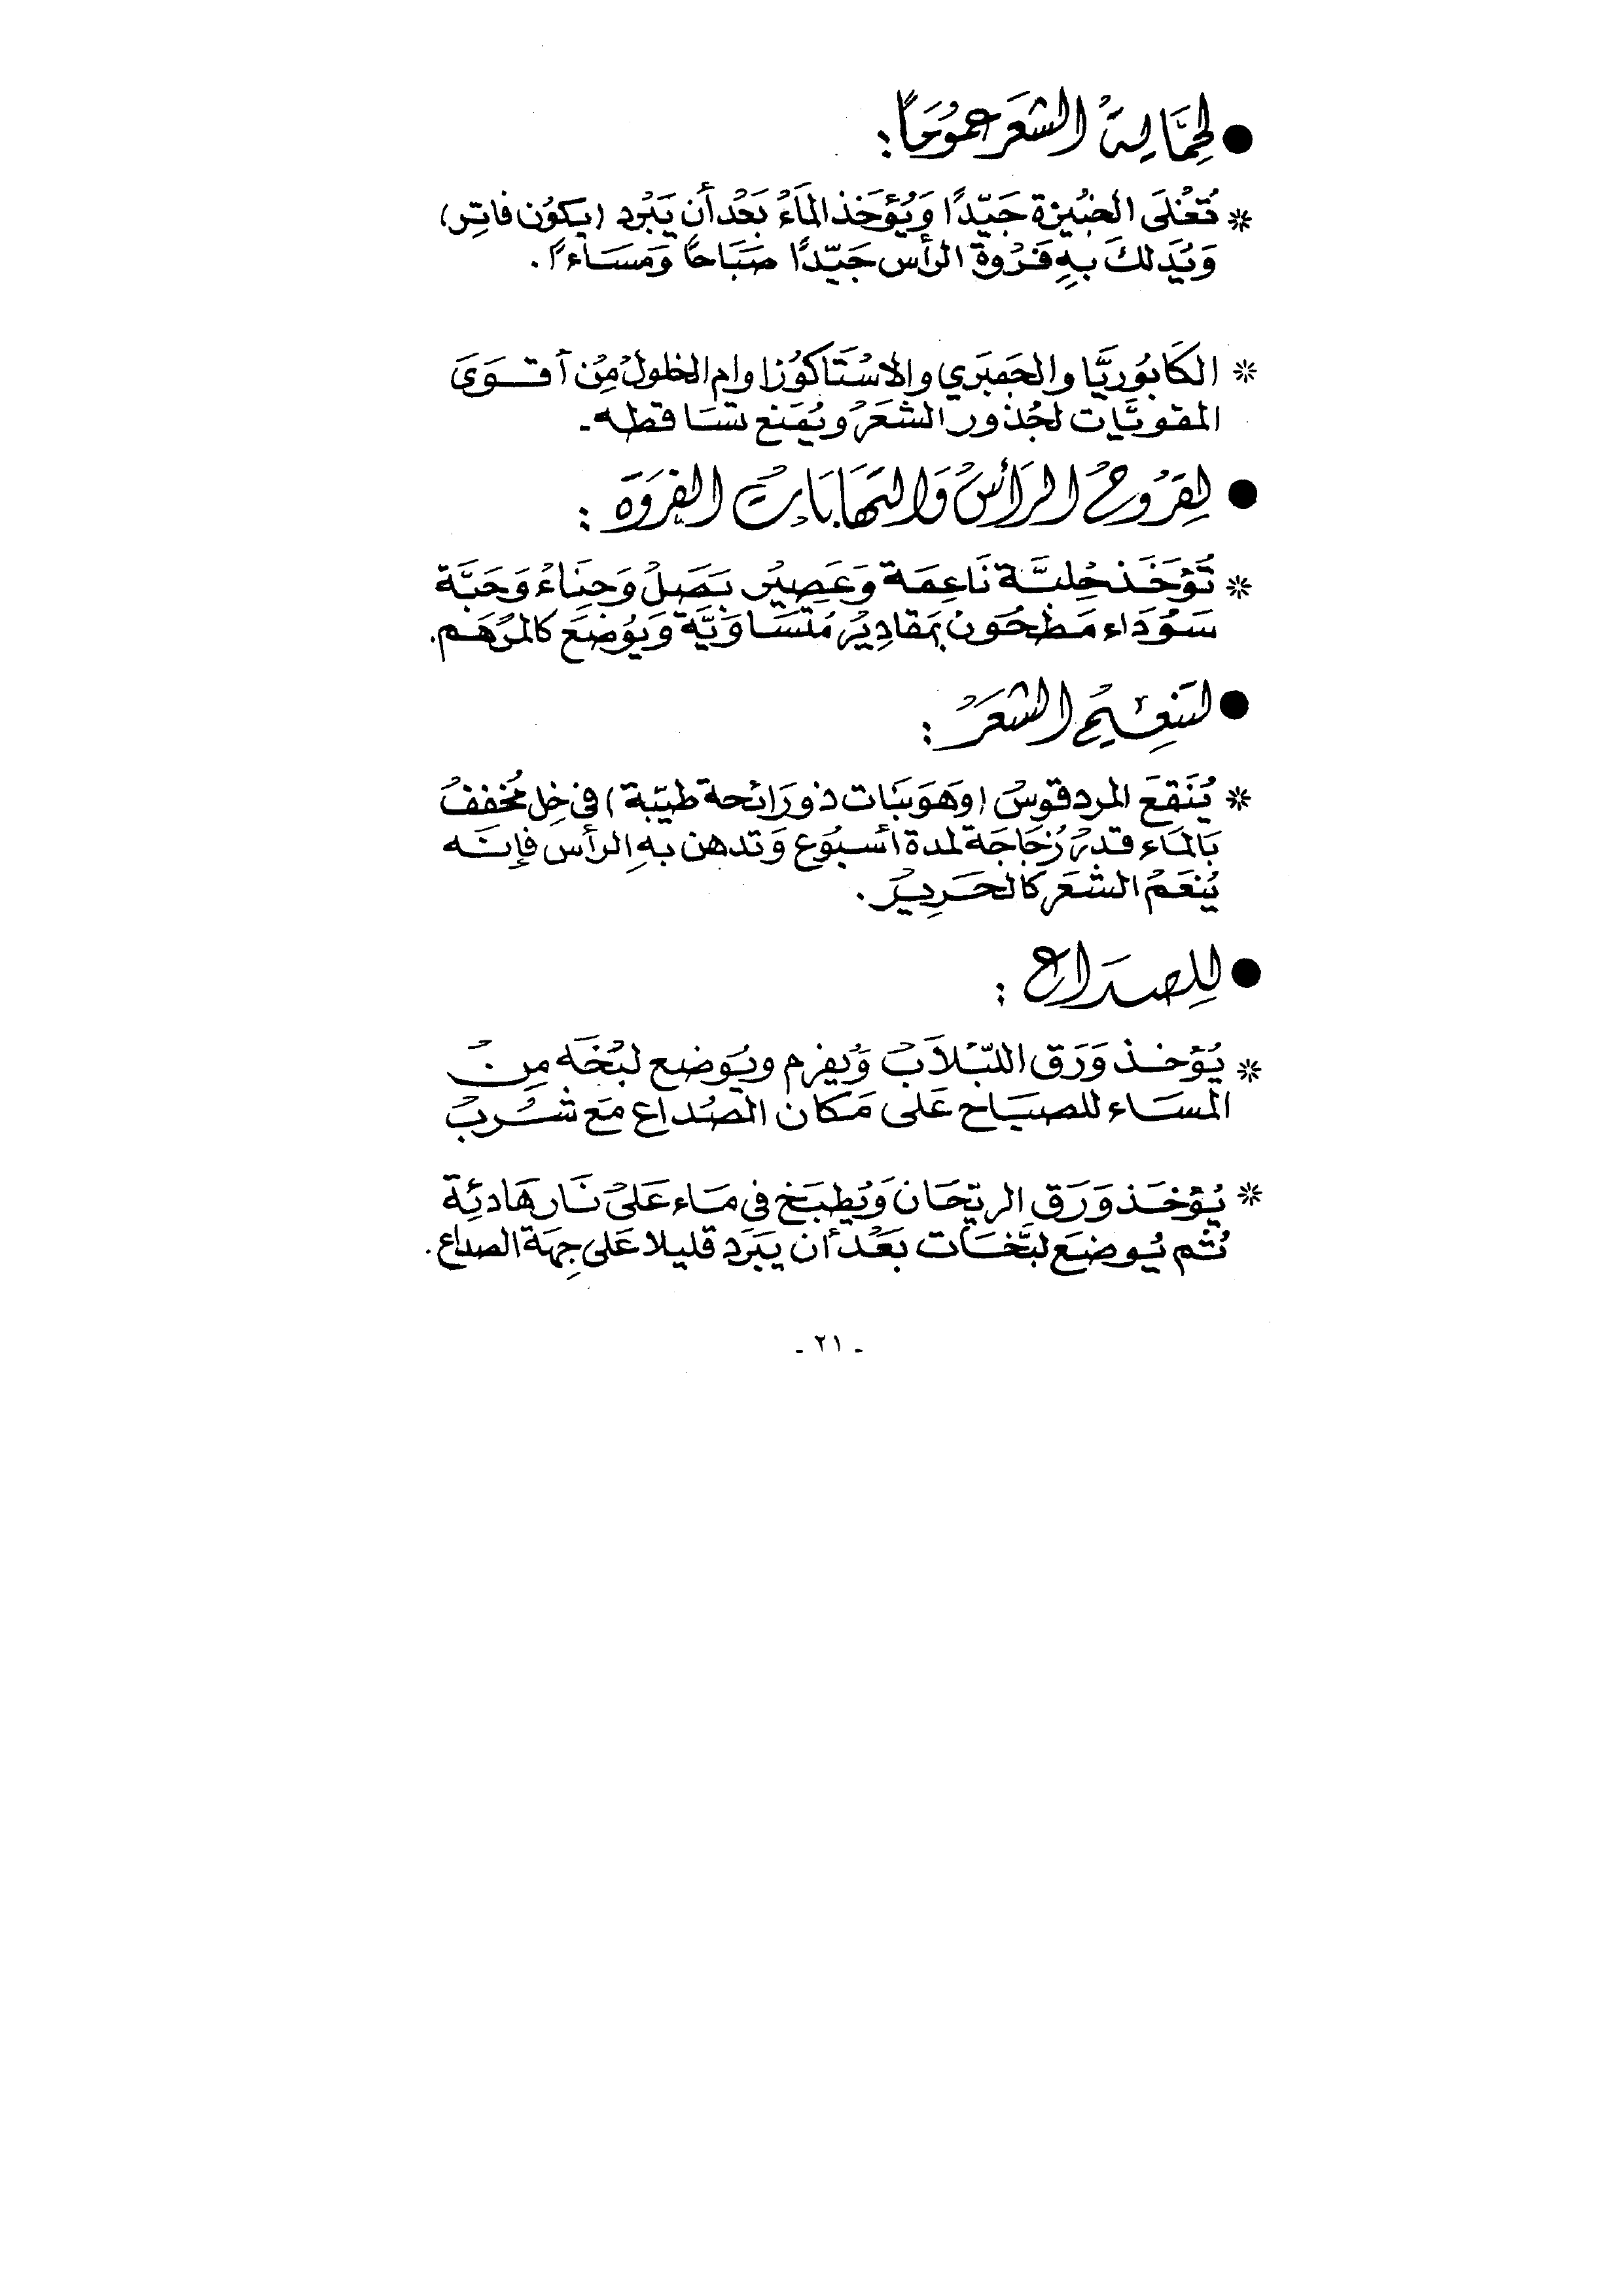 ● لِحِمَايَةِ الشَّعَرْ عمُومًا:
* تُغْلَى الخبيزة جَيّدًا وَيُؤخَذ المَاءُ بَعْدأن يَبْرد (يكوُن فاتِر)
وَيُدَلكَ بهِ فَرْوة الرأس جَيّدًا صَبَاحًا وَمسَاءًا.
* الكَابوُريَّا والجَمبَري والاسْتَاكوُزا وام الخلولْ مِنْ أقــوَىَ
المقويَّات لجُذور الشعَرْ ويُمَنع تسَاقطه.
● لِقرُوحُ الرَأسْ وَالتهَابَاتْ الفرَوَة :
* تَؤخَذ حِلبَــة نَاعِمَة وَعَصِيرْ بَصَلْ وَحِنَاءْ وَحَبَّة
سَوْدَاء مَطحُونْ بمَقادِيرْ مُتسَاوَيَّة وَيوُضعَ كالمَرْهَم.
● لتنعِيْم الشعَرْ :
* يُنَقعَ المردقوسْ (وهَوَنبَات ذورَائحة طيّبة) فى خِل مُخففْ
بَالمَاء قدرْ زُجَاجَة لمدة أسبوُع وَتدهن بهِ الرأس فإنَــه
يُنعَمْ الشعَر كَالحَرِيرْ.
● لِلصـدَاع :
* يُؤخـذ وَرَق اللبْلاَبْ وَيفرم ويوَضع لبْخَه مِنْ
المسَاء للصبَاح عَلى مَكان الصُداع مَع شُــربْ
* يُؤخَـذ وَرَق الريّحَان وَيُطبَخ فى مَاء عَلىْ نَـار هَادئِة
ثُم يُـوضَع لبَّخـَات بَعَدْأن يبَرَد قليلا عَلى جِهَة الصداع.
- ٢١ -